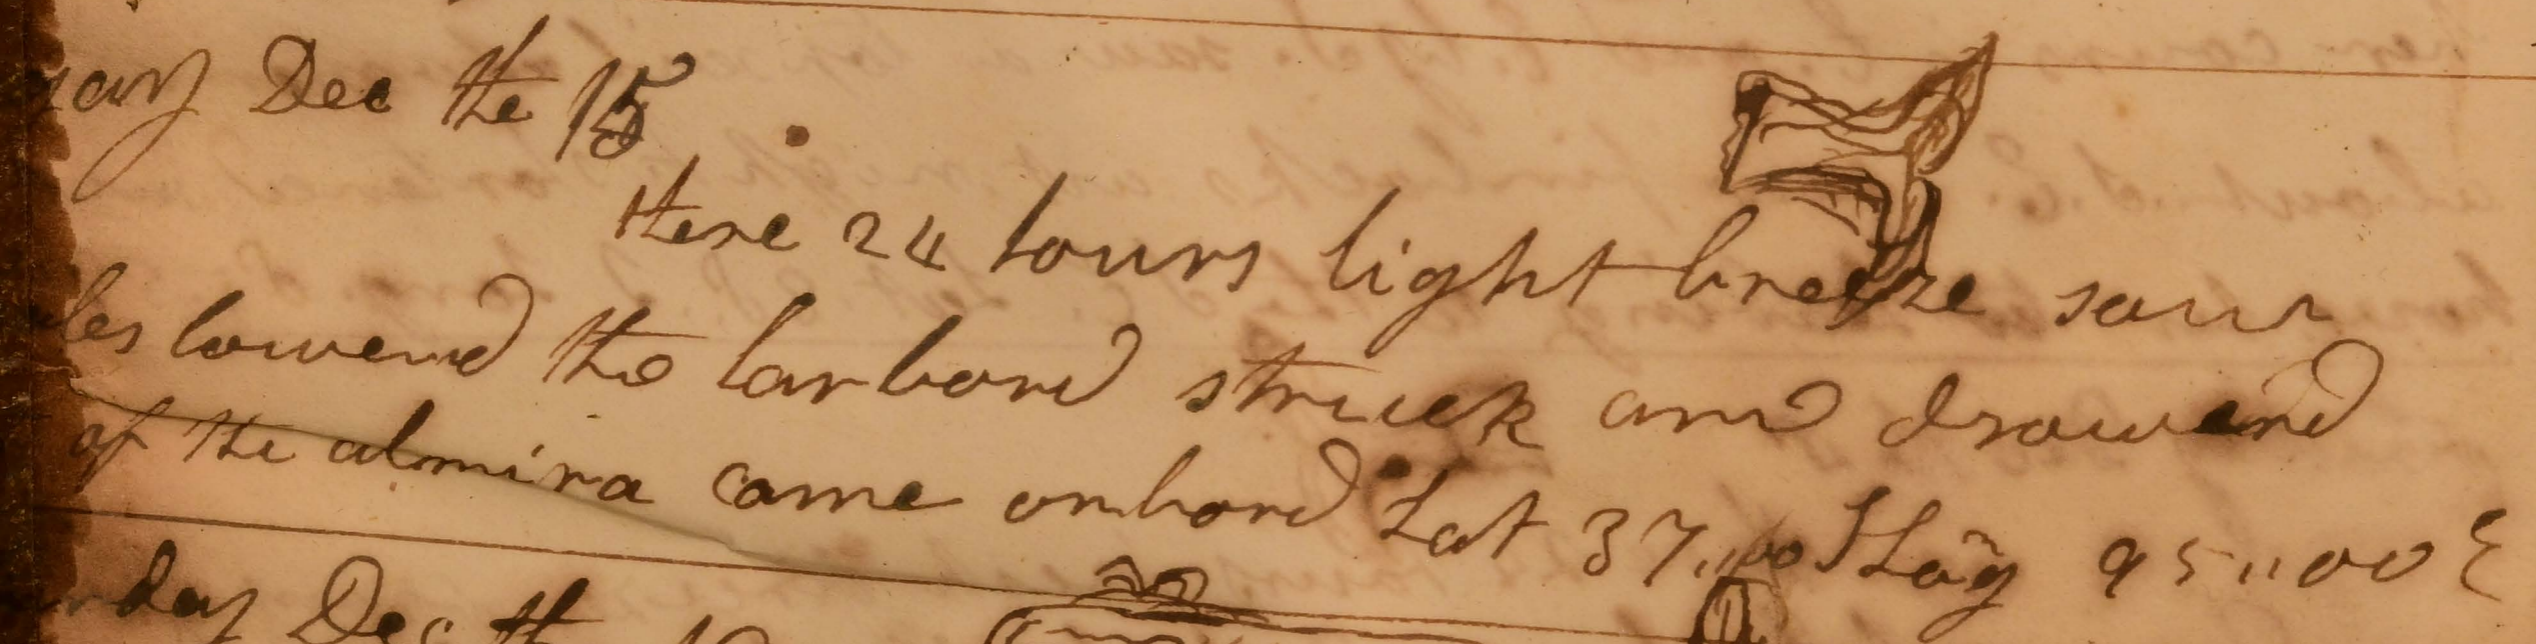 Dec the 15
these 24 hours light breeze saw
lowerd the larbord struck and drowerd
of the almira came onbord Lat 37,,00 S Log 95,,00 E
Dec th